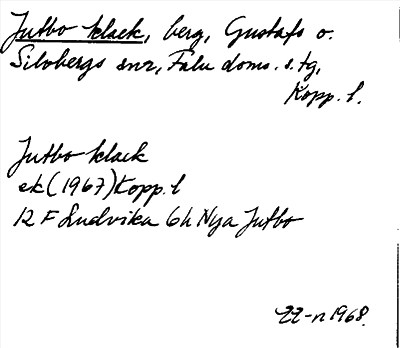 Jutbo klack, berg, Gustafs o.
Silvbergs snr, Falu doms. s. tg,
Kopp. l.
Jutbo klack
ek (1967) Kopp. l
12 F Ludvika 6h Nya Jutbo
ZZ-n 1968.